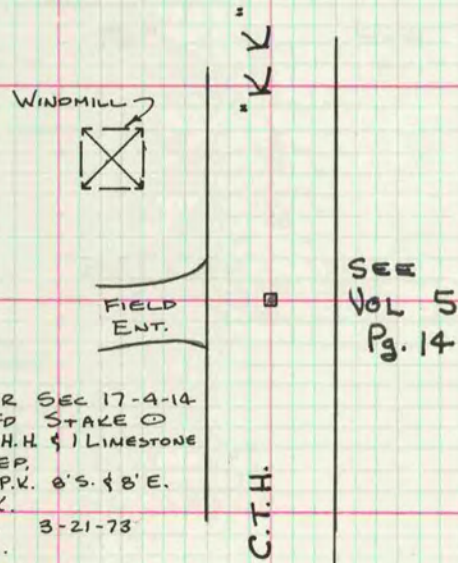 WINDMILL
"K K"
FIELD
ENT.
SEE
VOL 5
Pg. 14
R SEC 17-4-14
D STAKE ⊙
H.H. & 1 LIMESTONE
EP.
P.K. 8'S. & 8'E.
K.
3-21-73
C.T.H.